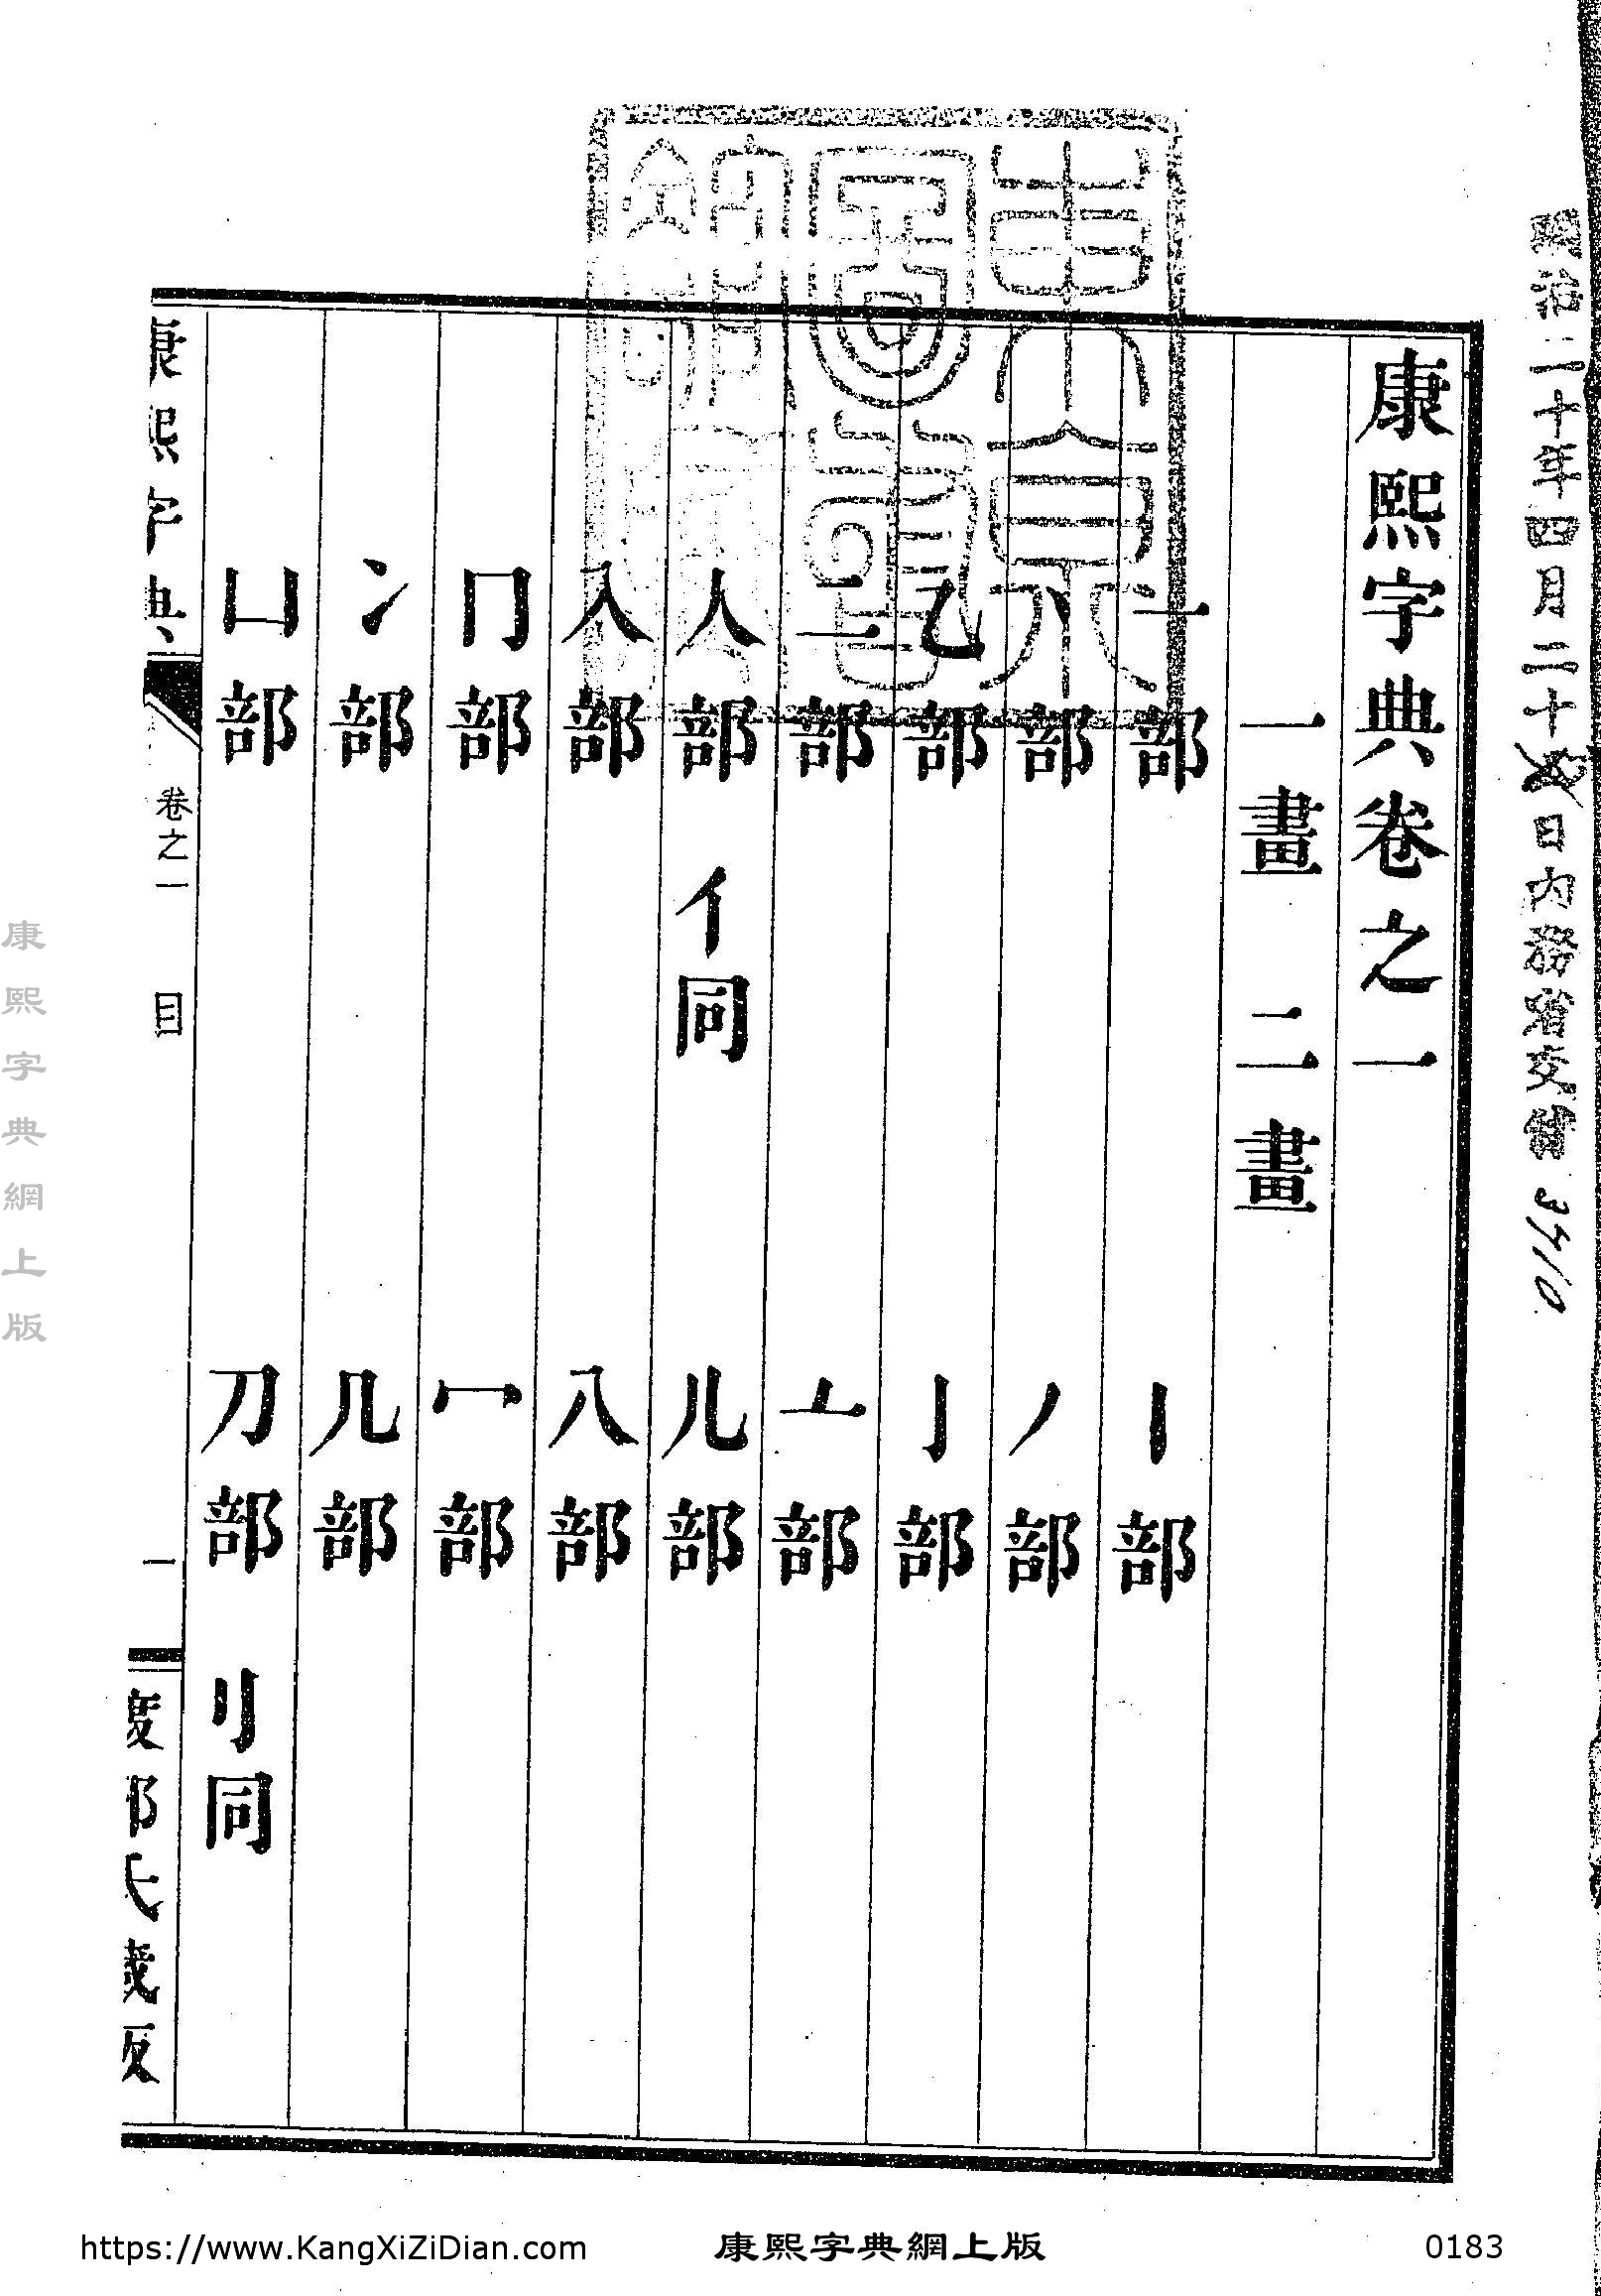 康熙字典卷之一
一畫 二畫
一部 丨部
丶部 丿部
乙部 亅部
二部 亠部
人部 亻同 儿部
入部 八部
冂部 冖部
冫部 几部
凵部 刀部 刂同
康熙字典 卷之一 目 一
明治二十年四月二十 日內務省交備 3410
康熙字典網上版
https://www.KangXiZiDian.com
康熙字典網上版
0183